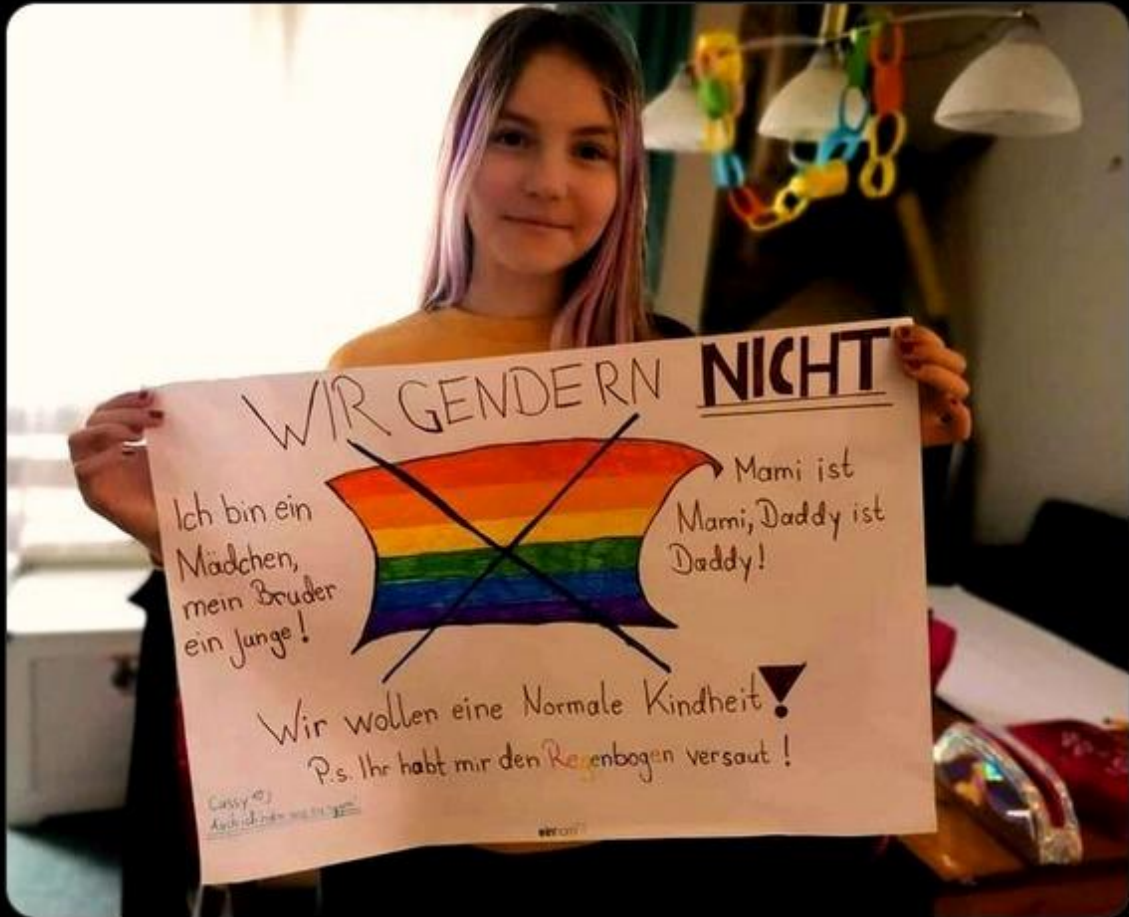 WIR GENDERN NICHT
Ich bin ein
Mädchen,
mein Bruder
ein Junge!
Mami ist
Mami, Daddy ist
Daddy!
Wir wollen eine Normale Kindheit!
P.s. Ihr habt mir den Regenbogen versaut!
Cassy